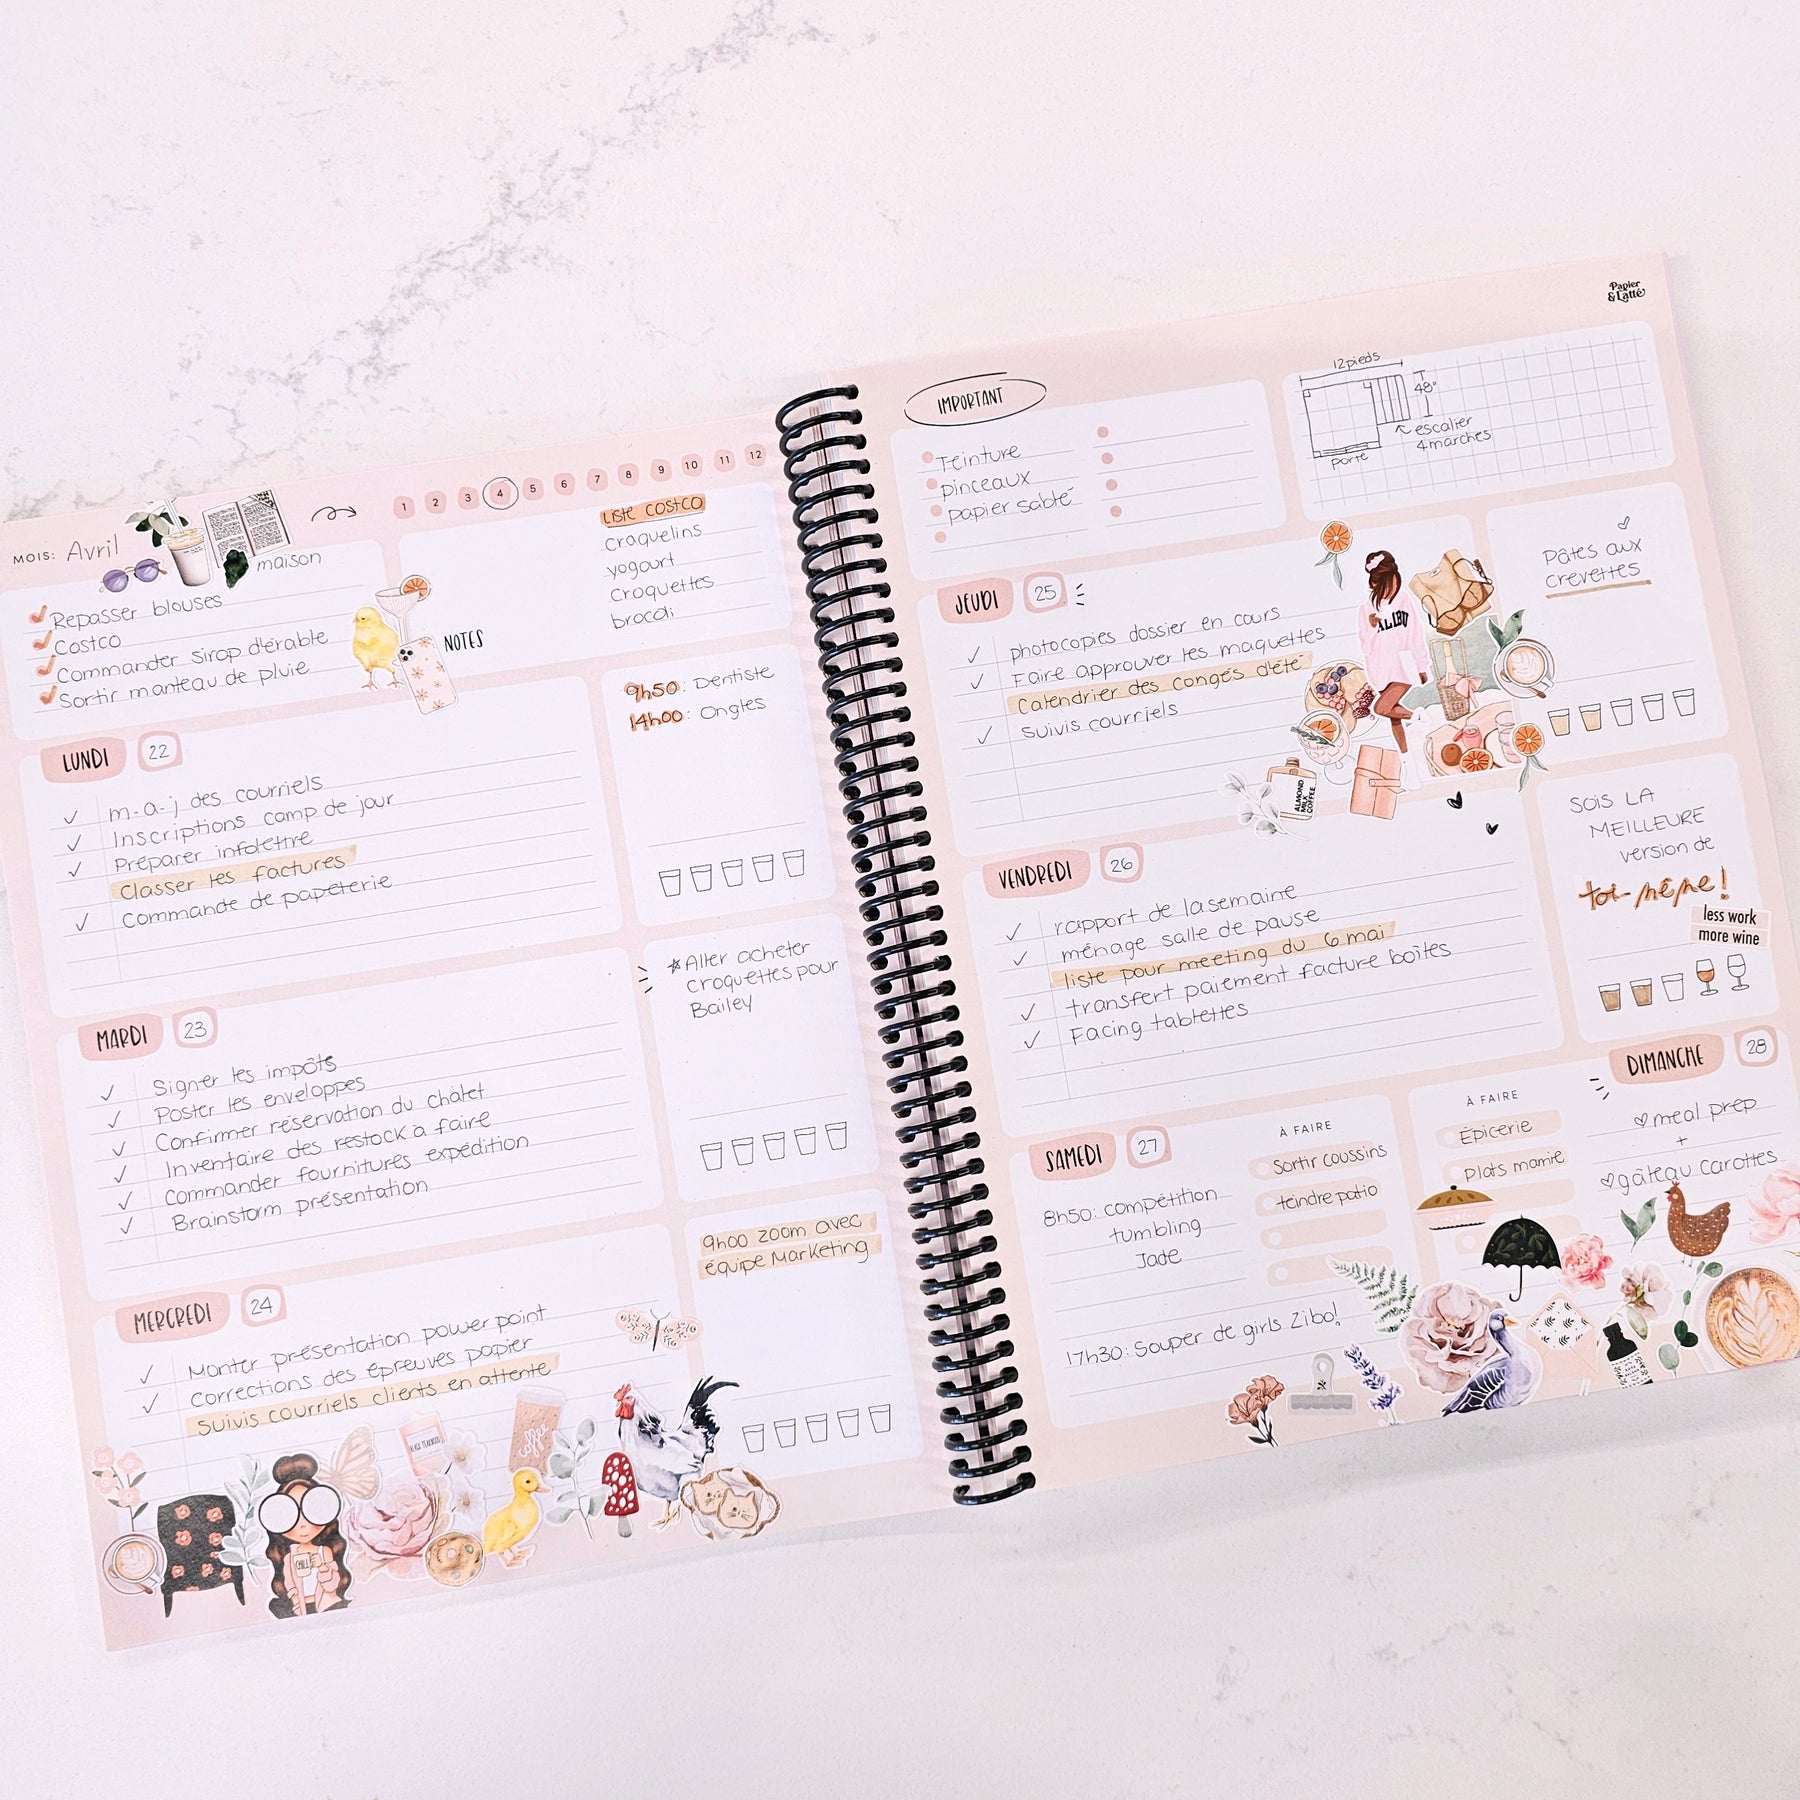 MOIS: Avril
1 2 3 4 5 6 7 8 9 10 11 12
maison
Repasser blouses
Costco
Commander sirop d'érable
Sortir manteau de pluie
NOTES
Liste costco
craquelins
yogourt
croquettes
brocoli
LUNDI 22
m-a-j des courriels
Inscriptions camp de jour
Préparer infolettre
Classer les factures
Commande de papeterie
9h50: Dentiste
14h00: Ongles
MARDI 23
Signer les impôts
Poster les enveloppes
Confirmer réservation du chalet
Inventaire des restock à faire
Commander fournitures expédition
Brainstorm présentation
Aller acheter
croquettes pour
Bailey
MERCREDI 24
Monter présentation power point
Corrections des épreuves papier
Suivis courriels clients en attente
9h00 zoom avec
équipe Marketing
coffee
CHILL
Papier
& Latté
IMPORTANT
Teinture
pinceaux
papier sablé
12 pieds
48"
escalier
4 marches
porte
JEUDI 25
photocopies dossier en cours
Faire approuver les maquettes
Calendrier des congés d'été
Suivis courriels
MALIBU
ALMOND
MILK
COFFEE
Pâtes aux
crevettes
VENDREDI 26
rapport de la semaine
ménage salle de pause
liste pour meeting du 6 mai
transfert paiement facture boîtes
Facing tablettes
SOIS LA
MEILLEURE
version de
toi-même!
less work
more wine
SAMEDI 27
8h50: compétition
tumbling
Jade
17h30: Souper de girls Zibo!
À FAIRE
Sortir coussins
teindre patio
DIMANCHE 28
À FAIRE
Épicerie
Plats mamie
meal prep
+
gâteau carottes